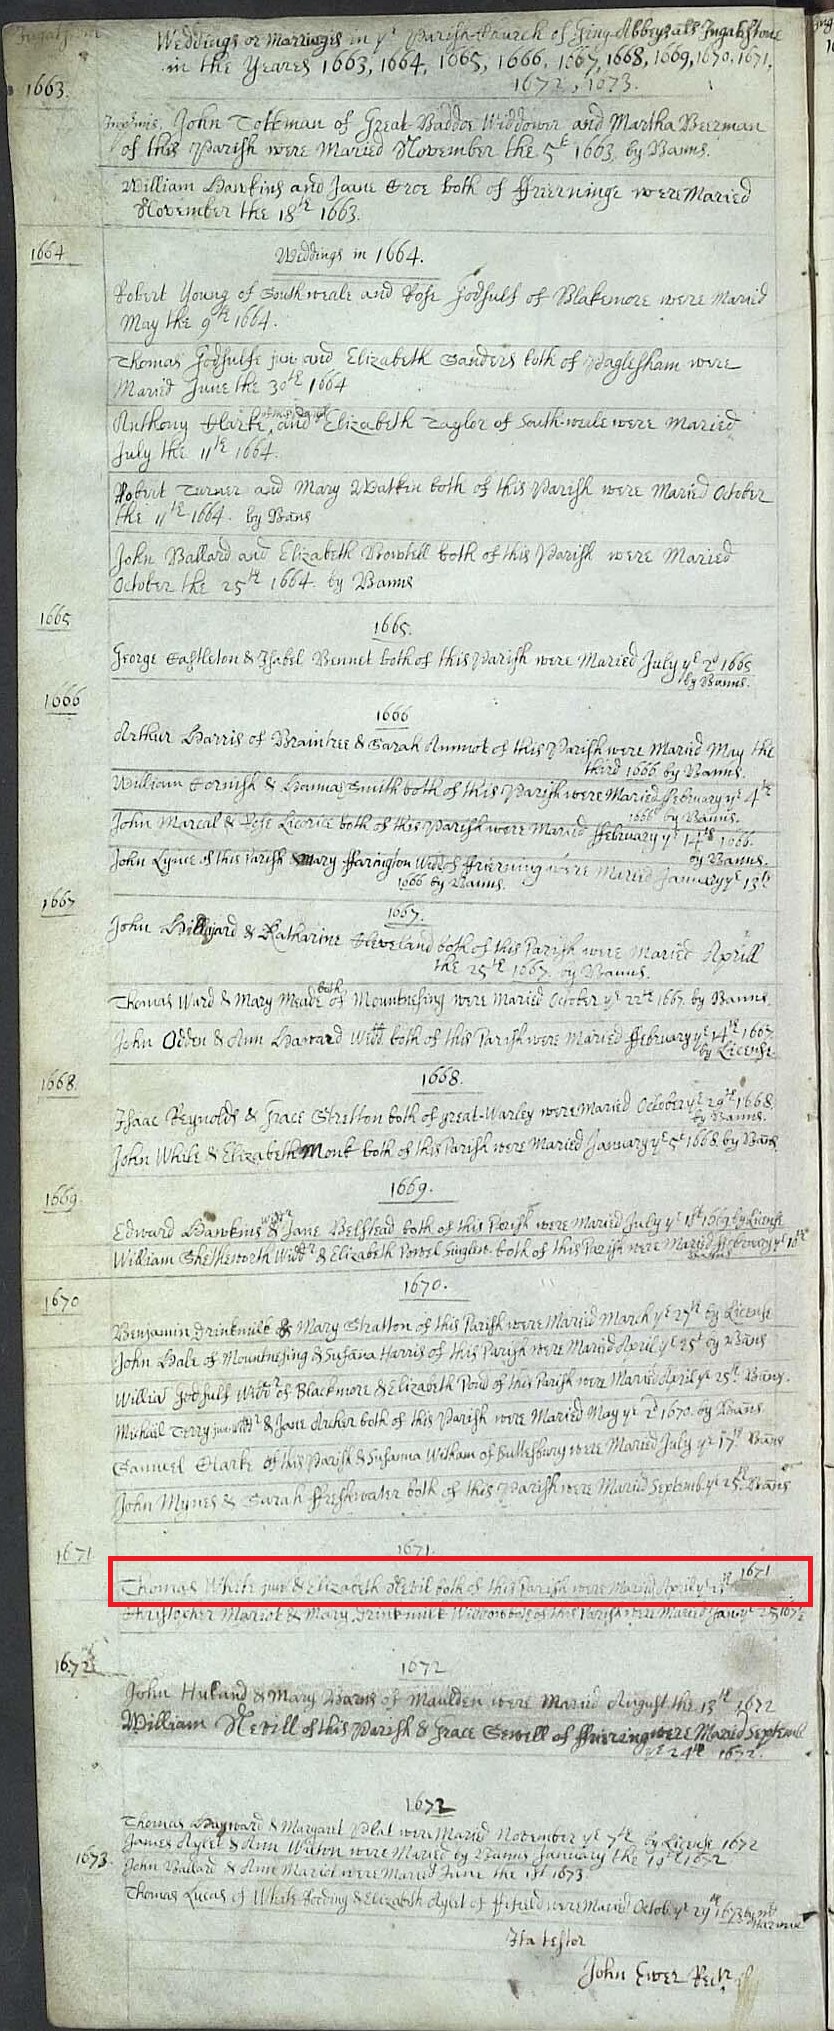 Weddings or Marriages in yᵉ Parish-Church of Ging-Abbeyss als Ingatestone
in the Yeares 1663, 1664, 1665, 1666, 1667, 1668, 1669, 1670, 1671,
1672, 1673.
1663.
John of Great Baddoe Widdower and Martha Beerman
of this Parish were Maried November the 5ᵗ 1663 by Banns.
William Hawkins and Jane Croe both of ffrierninge were Maried
November the 18ᵗʰ 1663.
1664
Weddings in 1664.
Robert Young of Southweale and Rose Godsulf of Blakemore were Maried
May the 9ᵗʰ 1664.
Thomas Godsulfe jun and Elizabeth Sanders both of Paglesham were
Maried June the 30ᵗʰ 1664
Anthony Clarke, and Elizabeth Taylor of South-weale were Maried
July the 11ᵗʰ 1664.
Robert Turner and Mary Watkin both of this Parish were Maried October
the 11ᵗʰ 1664. by Bans
John Ballard and Elizabeth both of this Parish were Maried
October the 25ᵗʰ 1664. by Banns
1665
1665.
George Castleton & Isabel Bennet both of this Parish were Maried July yᵉ 2ᵈ 1665
by Banns.
1666
1666
Arthur Harris of Braintree & Sarah of this Parish were Maried May the
third 1666 by Banns.
William Cornish & Hanna Smith both of this Parish were Maried ffebruary yᵉ 4ᵗʰ
1666 by Banns.
John Marcal & Rose Licorice both of this Parish were Maried ffebruary yᵉ 14ᵗʰ 1666.
by Banns.
John Lyne of this Parish & Mary ffarington Widd of ffrierning were Maried January yᵉ 13ᵗʰ
1666 by Banns.
1667
1667.
John Hilliard & Katharine Cleveland both of this Parish were Maried Aprill
the 25ᵗʰ 1667. by Banns.
both
Thomas Ward & Mary Meade of Mountnesing were Maried October yᵉ 22ᵗʰ 1667. by Banns.
John Odden & Ann Haward Widd both of this Parish were Maried ffebruary yᵉ 14ᵗʰ 1667
by License.
1668.
1668.
Isaac Reynolds & Grace Stretton both of great-Warley were Maried October yᵉ 29ᵗʰ 1668.
by Banns.
John White & Elizabeth Monk both of this Parish were Maried January yᵉ 5ᵗ 1668 by Bans
1669
1669.
Edward Hawkins widdʳ & Jane Belstead both of this Parish were Maried July yᵉ 1669 by License
William Shettleworth Widdʳ & Elizabeth Powel Singlew. both of this Parish were Maried ffebruary yᵉ 10ᵗʰ
1670
1670.
Benjamin Drinkmilk & Mary Stratton of this Parish were Maried March yᵉ 27ᵗʰ by License
John Hale of Mountnesing & Susana Harris of this Parish were Maried April yᵉ 25ᵗ by Bans
William Godsulf Widdʳ of Blackmore & Elizabeth Pond of this Parish were Maried April yᵉ 25ᵗʰ. Bans.
Michael Terry jun Widdʳ & Jane Archer both of this Parish were Maried May yᵉ 2ᵈ 1670. by Bans.
Samuel Clarke of this Parish & Susanna Witham of Buttesbury were Maried July yᵉ 17ᵗʰ Bans
John Mynes & Sarah ffreshwater both of this Parish were Maried Septemb. yᵉ 25ᵗʰ. Bans
1671
1671.
Thomas White jun & Elizabeth Nevil both of this Parish were Maried April yᵉ 1671
Christopher Mariot & Mary Drinkmilk Widdow both of this Parish were Maried Janᵛ yᵉ 25 167½
1672
1672
John Huband & Mary Barns of Maulden were Maried August the 13ᵗʰ 1672
William Nevill of this Parish & Grace Sewell of ffriering were Maried Septemb
yᵉ 24ᵗʰ 1672.
1672
Thomas Hayward & Margaret Plat were Maried November yᵉ 7ᵗʰ by License 1672
James Aylet & Ann Wilton were Maried by Banns January the 19ᵗʰ 1672
1673.
John Ballard & Ann Mariot were Maried June the 1st 1673.
Thomas Lucas of White Rooding & Elizabeth Aylet of ffifield were Maried Octob. yᵉ 29ᵗʰ 1673 by mʳ
Ita testor
John Ewer Rectʳ